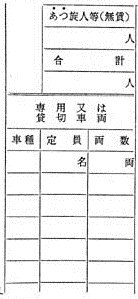 あっ旋人等(無賃)
人
合計
人
専用又は
貸切車両
車種 定員 両数
名 両